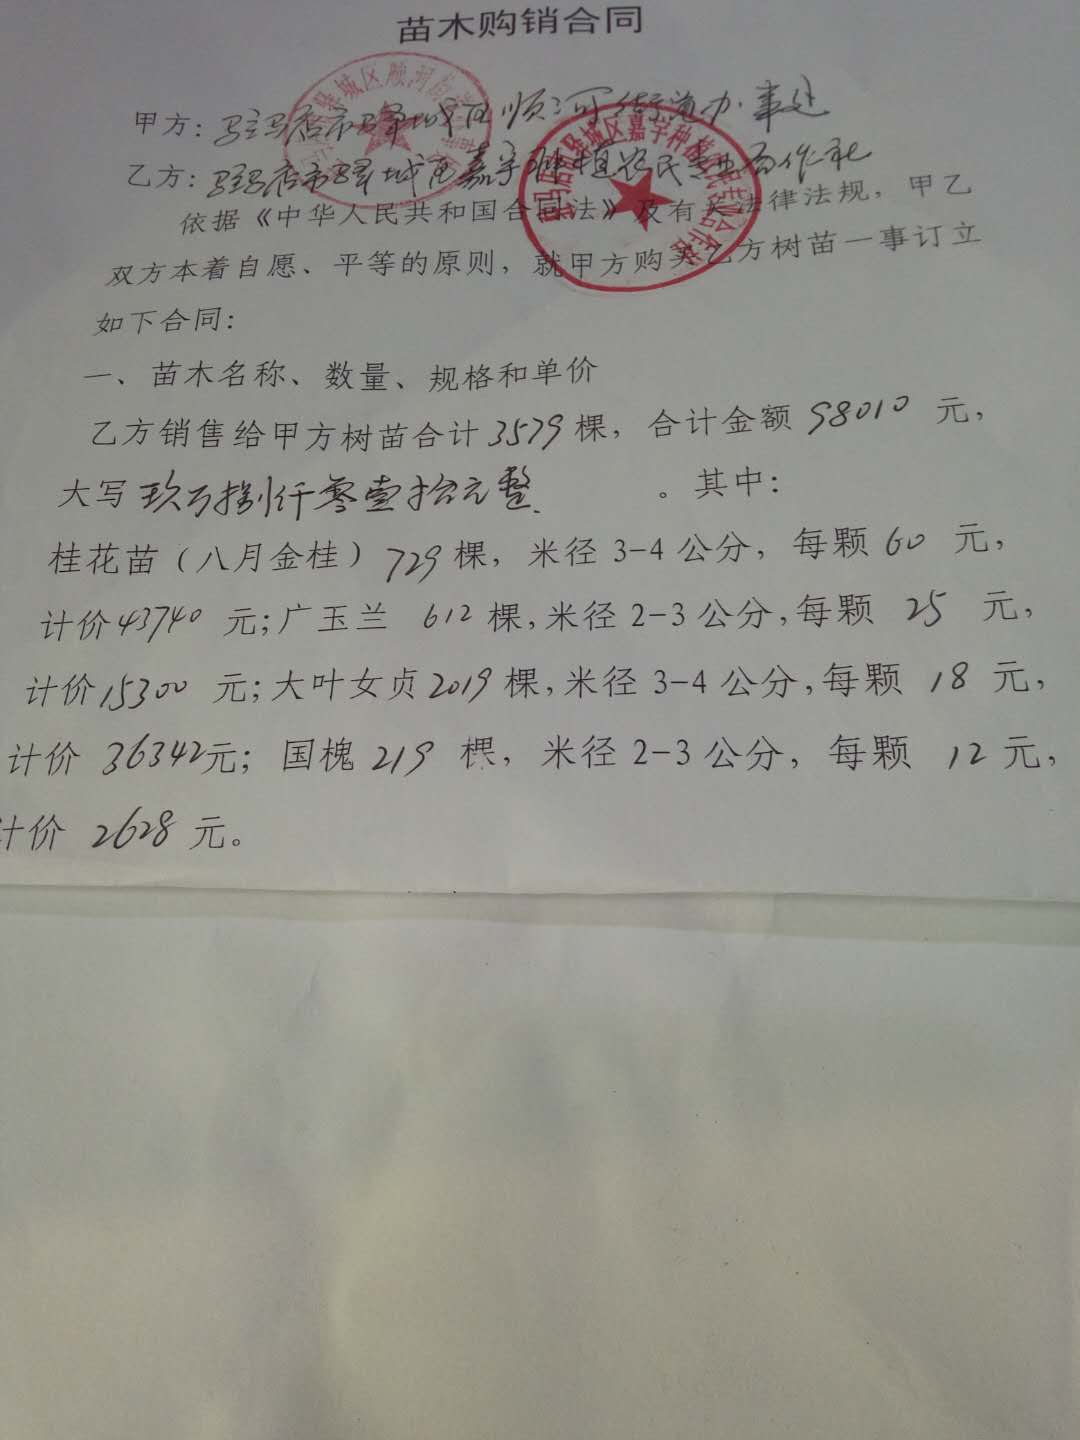 苗木购销合同
甲方：驻马店市驿城区顺河街道办事处
乙方：驻马店市驿城区嘉宇种植农民专业合作社
依据《中华人民共和国合同法》及有关法律法规，甲乙
双方本着自愿、平等的原则，就甲方购买乙方树苗一事订立
如下合同：
一、苗木名称、数量、规格和单价
乙方销售给甲方树苗合计3579棵，合计金额98010元，
大写玖万捌仟零壹拾元整。其中：
桂花苗（八月金桂）729棵，米径3-4公分，每颗60元，
计价43740元；广玉兰 612棵，米径2-3公分，每颗 25 元，
计价15300 元；大叶女贞2019棵，米径3-4公分，每颗 18 元，
计价 36342元；国槐219 棵，米径2-3公分，每颗 12元，
计价 2628 元。
驿城区顺河
驻马店市驿城区嘉宇种植农民专业合作社